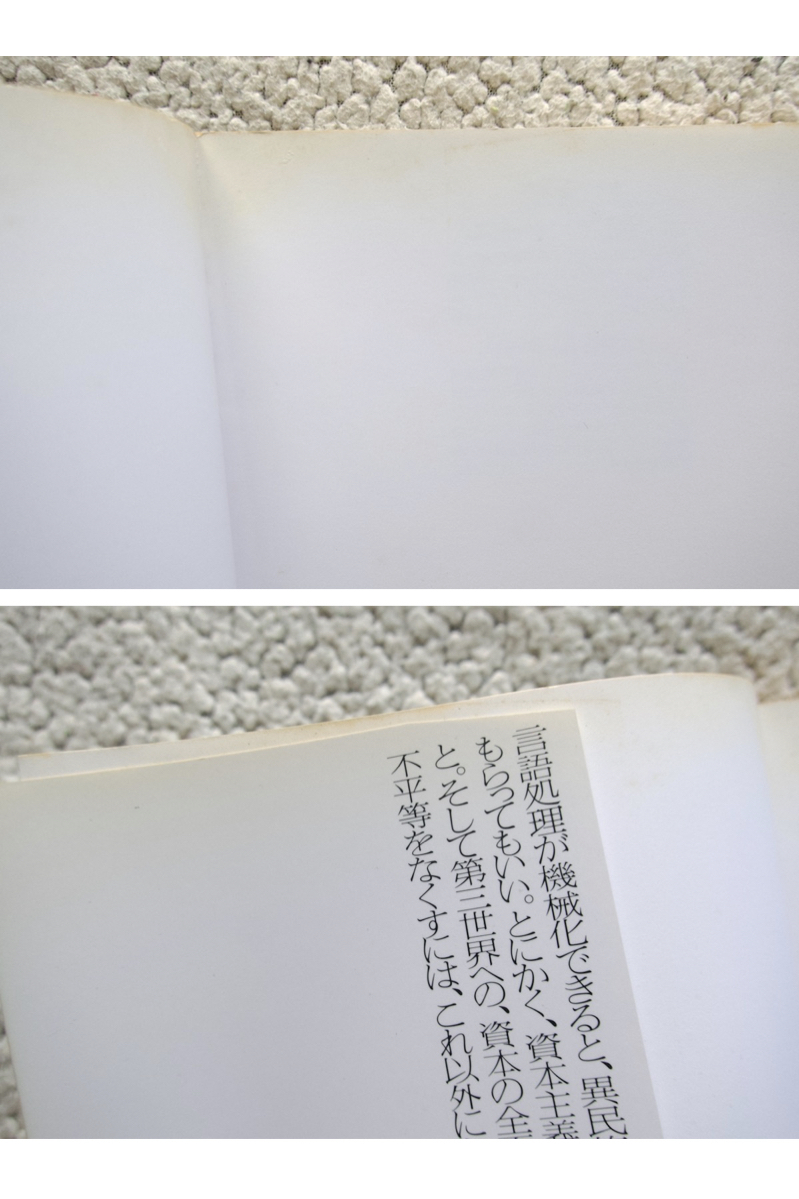 言語処理が機械化できると、異民
もらってもいい。とにかく、資本主義
と。そして第三世界への、資本の全
不平等をなくすには、これ以外に